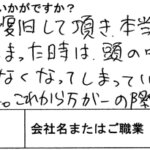 いかがですか？
復旧して頂き、本当
まった時は、頭の中
なくなってしまってい
。これから万が一の際
会社名またはご職業